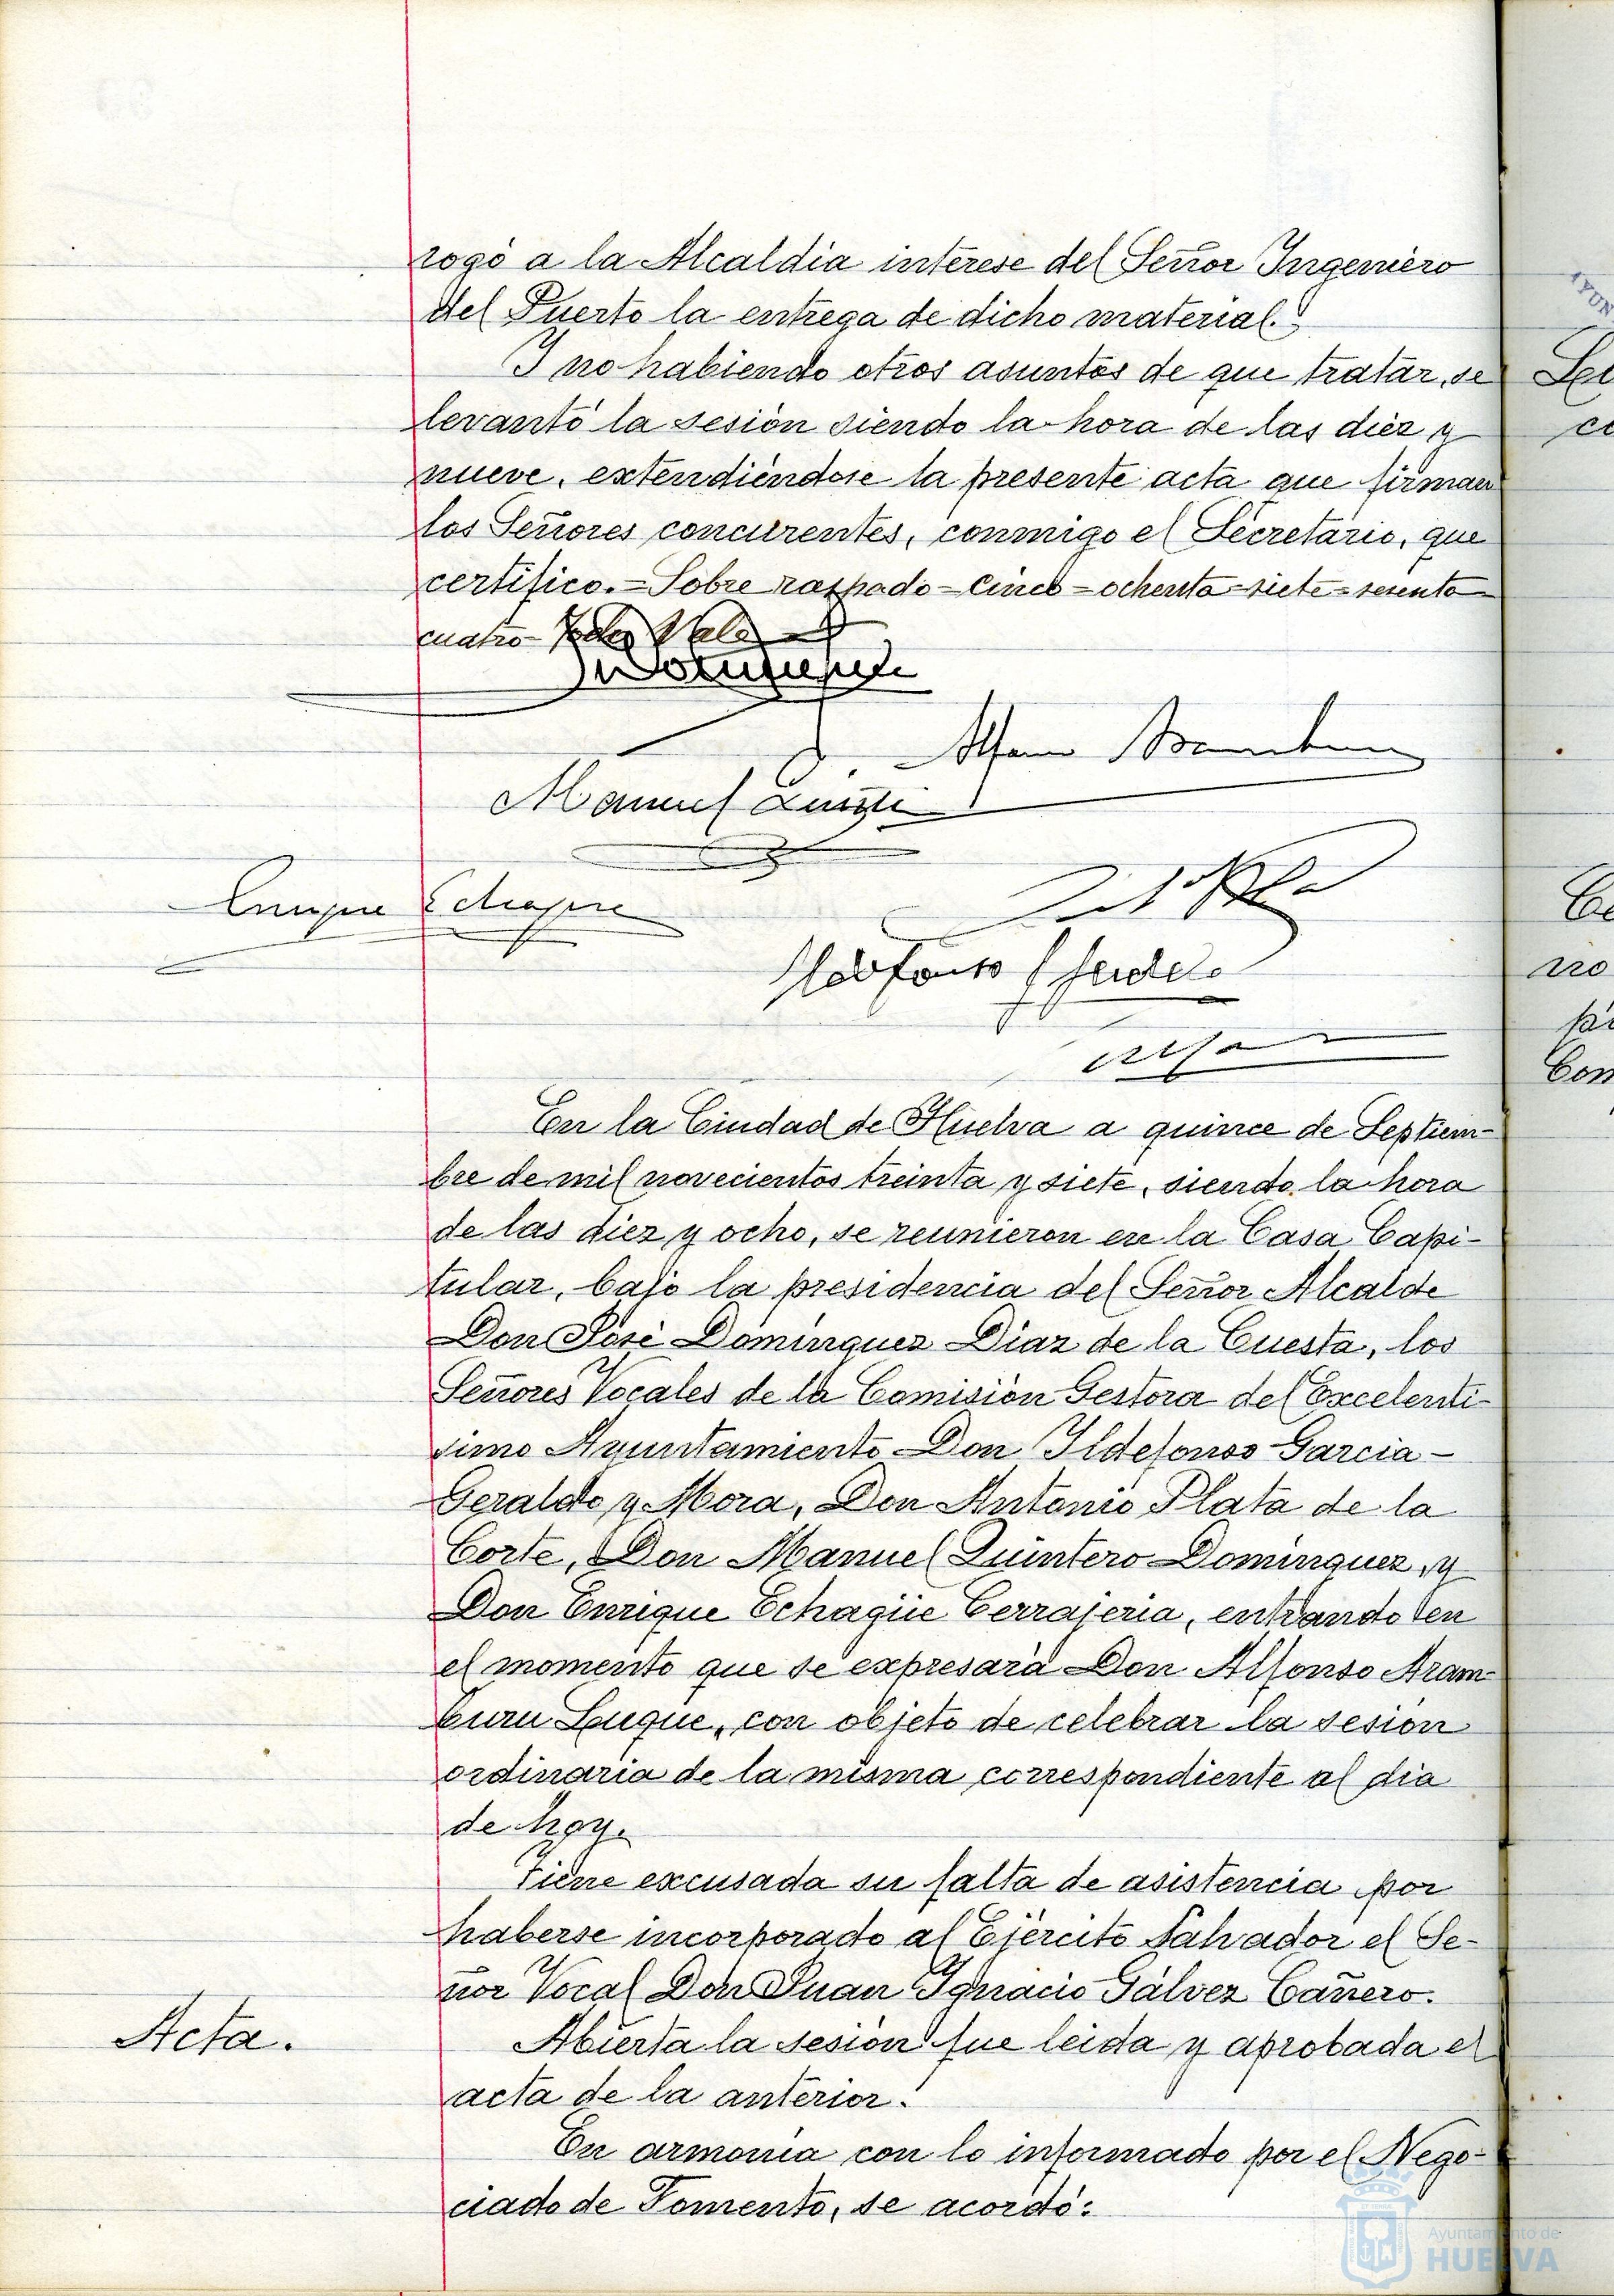 rogó a la Alcaldia interese del Señor Ingeniero
del Puerto la entrega de dicho material.
Y no habiendo otros asuntos de que tratar, se
levantó la sesión siendo la hora de las diez y
nueve, extendiéndose la presente acta que firman
los Señores concurrentes, conmigo el Secretario, que
certifico.=Sobre raspado=cinco=ochenta=siete=sesenta
cuatro=Todo Vale
Manuel
Enrique Echague
En la Ciudad de Huelva a quince de Septiem-
bre de mil novecientos treinta y siete, siendo la hora
de las diez y ocho, se reunieron en la Casa Capi-
tular, bajo la presidencia del Señor Alcalde
Don José Dominguez Diaz de la Cuesta, los
Señores Vocales de la Comisión Gestora del Excelenti-
simo Ayuntamiento Don Ildefonso Garcia-
Geraldo y Mora, Don Antonio Plata de la
Corte, Don Manuel Quintero Dominguez, y
Don Enrique Echagüe Cerrajeria, entrando en
el momento que se expresará Don Alfonso Aram-
buru Luque, con objeto de celebrar la sesión
ordinaria de la misma correspondiente al dia
de hoy.
Tiene excusada su falta de asistencia por
haberse incorporado al Ejército Salvador el Se-
ñor Vocal Don Juan Ignacio Gálvez Cañero.
Acta.
Abierta la sesión fue leida y aprobada el
acta de la anterior.
En armonia con lo informado por el Nego-
ciado de Fomento, se acordó:
Ayuntamiento de
HUELVA